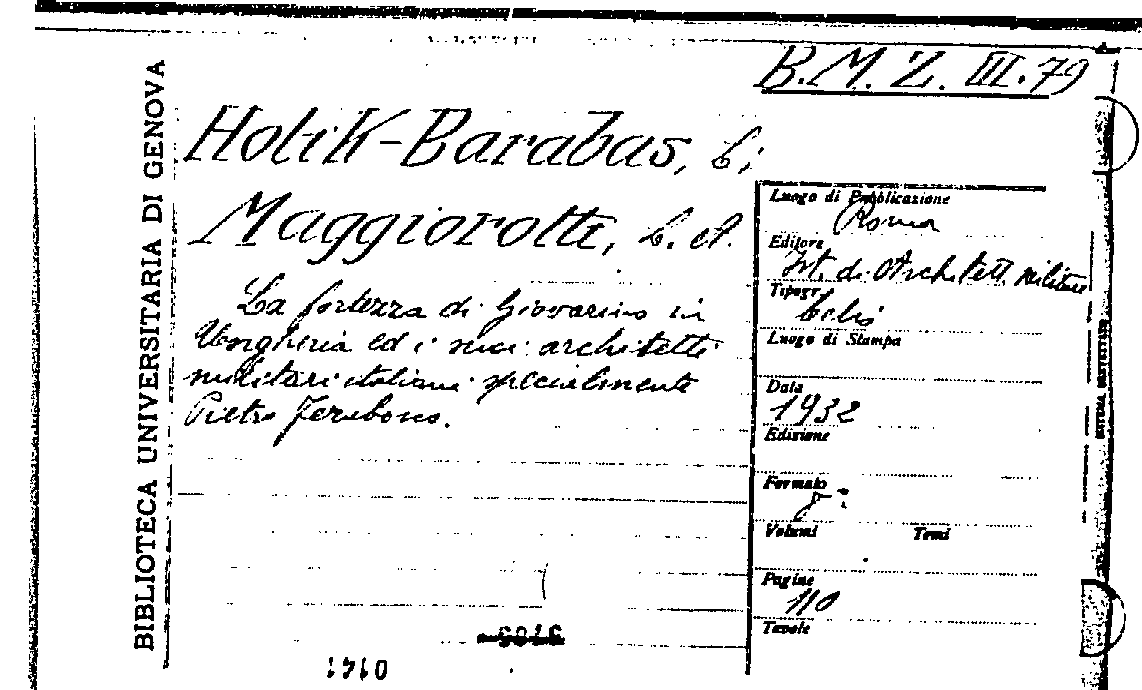 B.M.Z. III.79
BIBLIOTECA UNIVERSITARIA DI GENOVA
Holik-Barabas, L;
Maggiorotti, L. A.
La fortezza di Giovarino in
Ungheria ed i suoi architetti
militari italiani specialmente
Pietro Ferabosco.
Luogo di Pubblicazione
Roma
Editore
Ist. di Architett. militare
Tipogr.
Luogo di Stampa
Data
1932
Edizione
Formato
8º
Volumi Tomi
Pagine
110
Tavole
0141